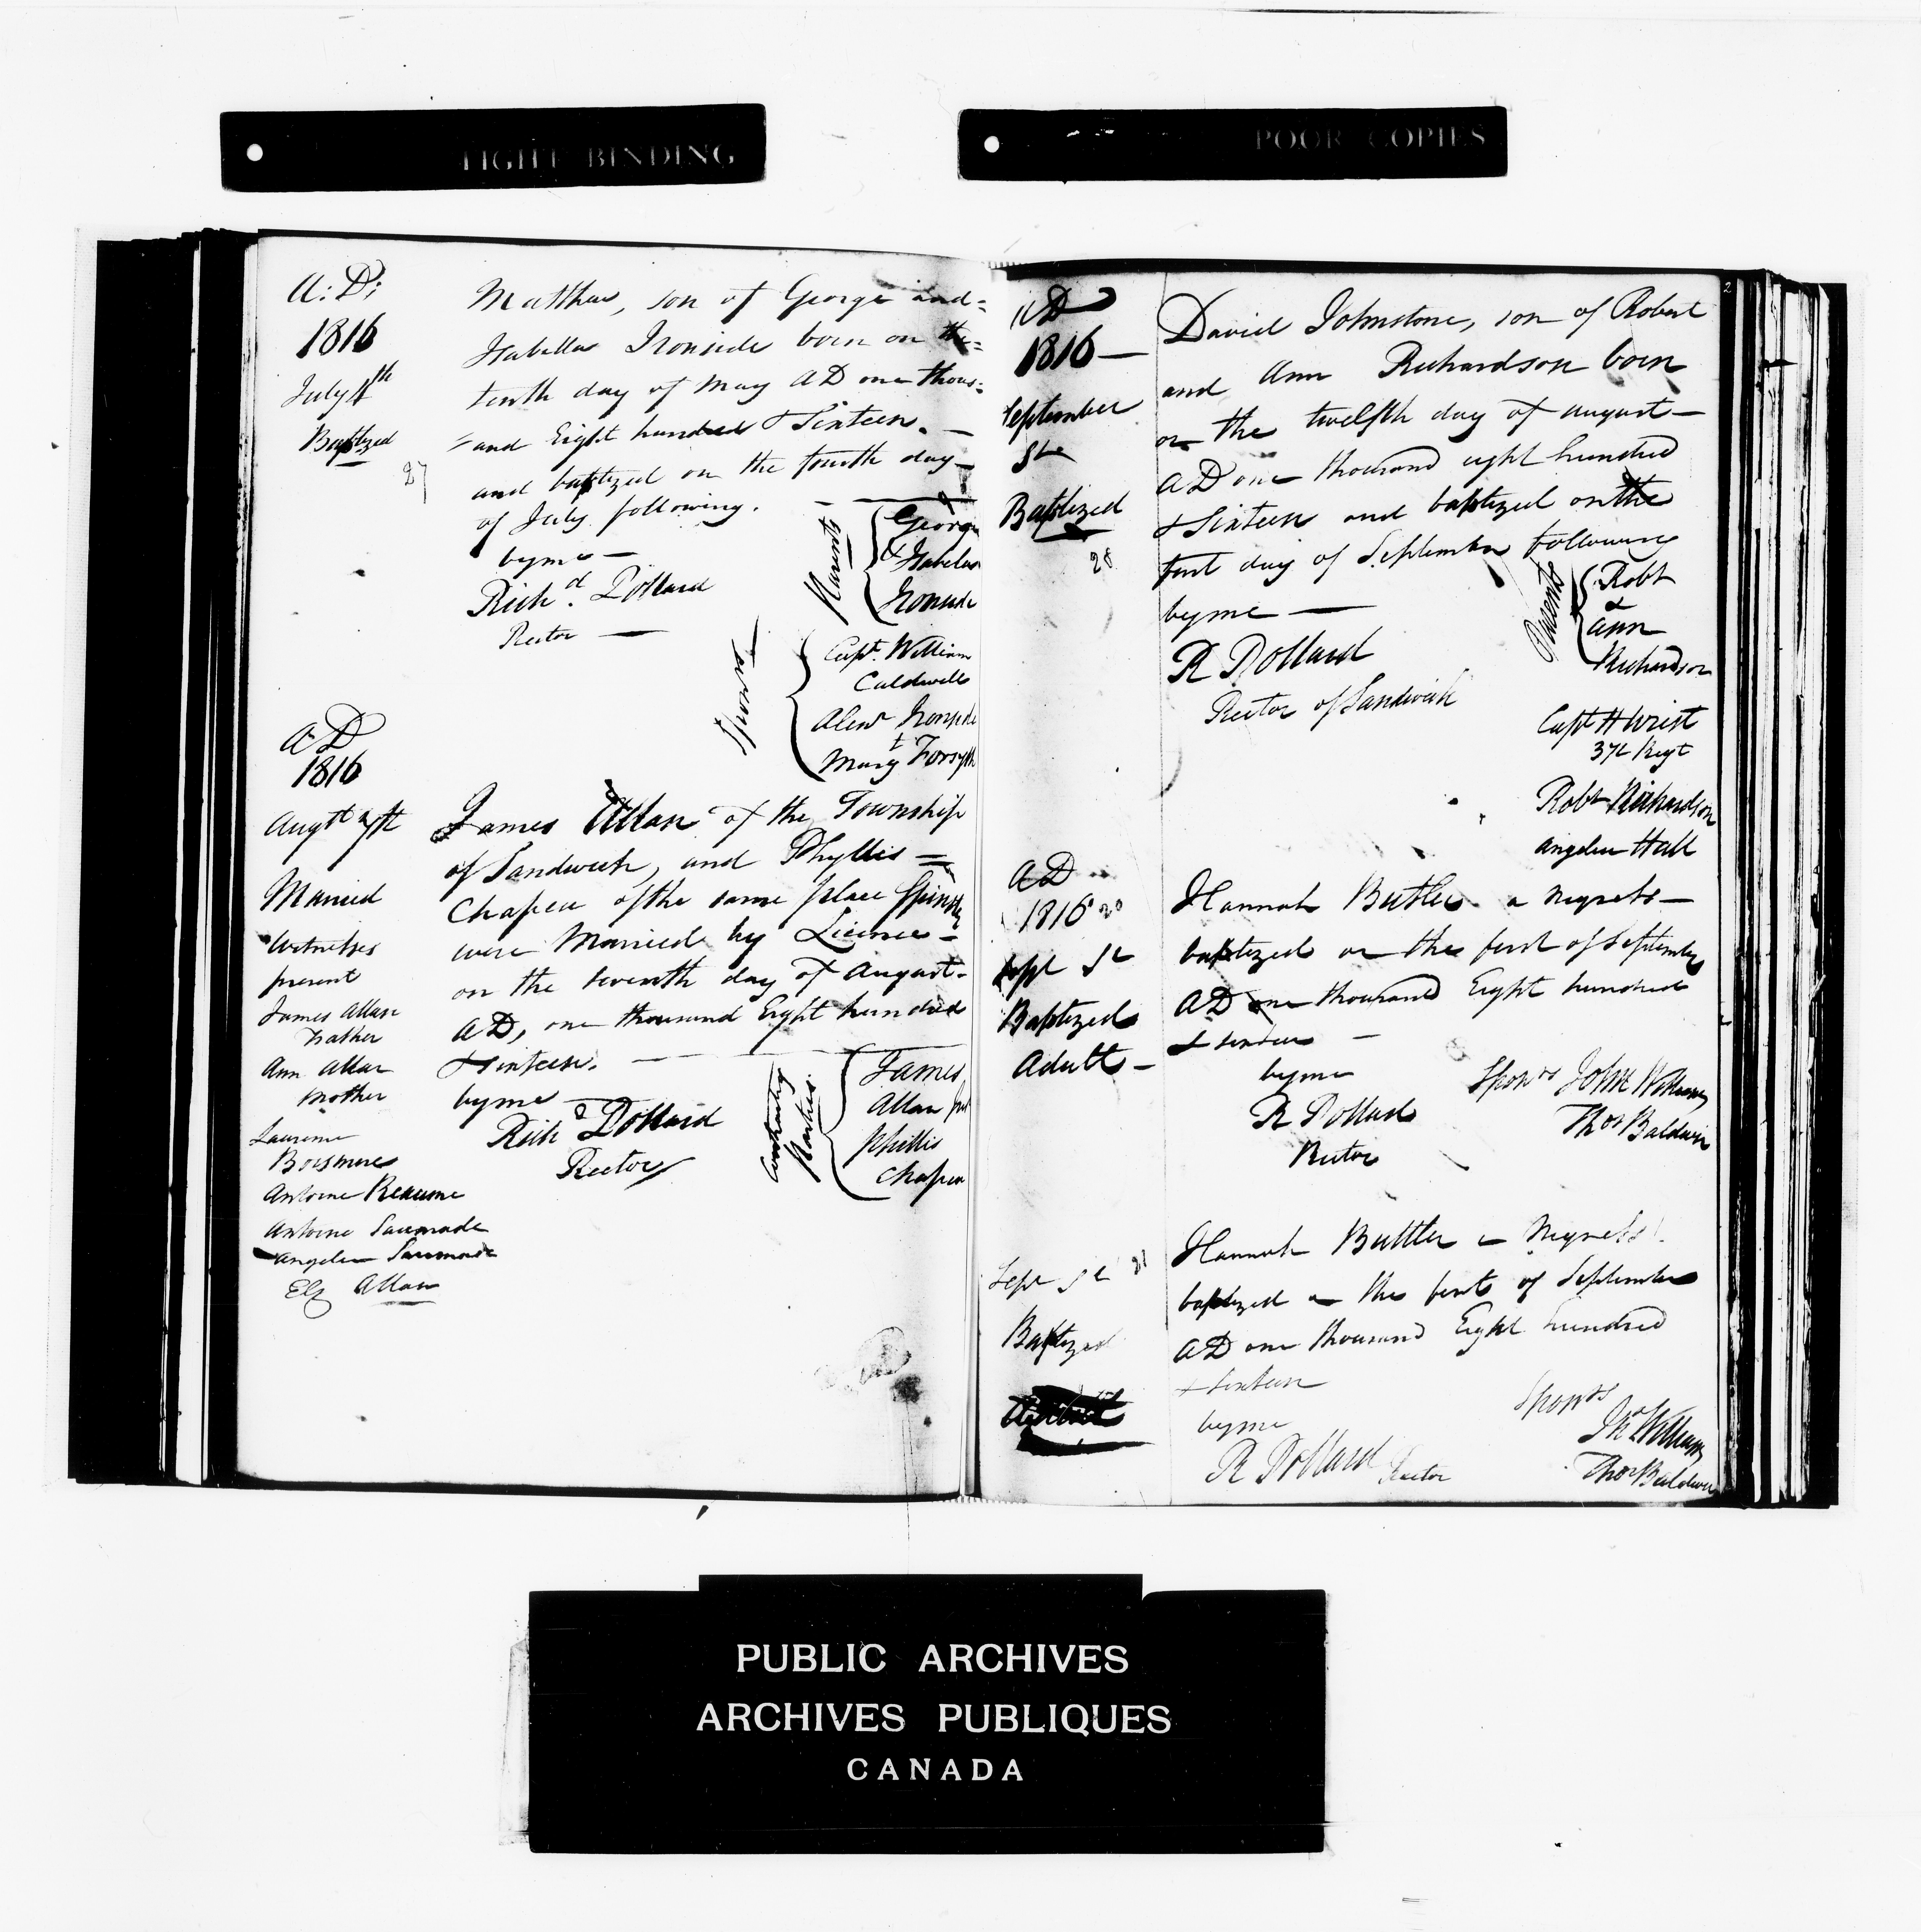 TIGHT BINDING
POOR COPIES
A: D:
1816
July 4th
Baptized
27
Matthew, son of George and=
Isabella Ironside born on the=
tenth day of May AD one thous=
=and Eight hundred & Sixteen. —
and baptized on the fourth day
of July following. —
by me —
Richd. Pollard
Rector —
Parents
George
& Isabella
Ironside
Sponsrs
Capt. William
Caldwell
Alexr Ironside
&
Mary Forsyth
AD
1816
Augt 7th
Married
Witnesses
present
James Allan
Father
Ann Allan
Mother
Antoine Reaume
Antoine
Angelic
Elz Allan
James Allan of the Township
of Sandwich, and Phyllis =
Chapen of the same place Spinster
were Married by Licence =
on the seventh day of August=
AD, one thousand Eight hundred
& sixteen. —
by me —
Richd Pollard
Rector
Contracting
Parties.
James
Allan
Phillis
Chapen
2
AD
1816 —
September
1st
Baptized
28
David Johnstone, son of Robert
and Ann Richardson born
on the twelfth day of August —
AD one thousand eight hundred
& Sixteen and baptized on the
first day of September following
by me —
R Pollard
Rector of Sandwich
Parents
Robt
&
Ann
Richardson
Capt
37th Regt
Robt Richardson
Hall
AD
1816
Sept 1st
Baptized
Adult —
Hannah Butler a Negress —
baptized on the first of September
AD one thousand Eight hundred
& sixteen —
by me
R Pollard
Rector
Sponrs John Williams
Thos Baldwin
Sept 1st
Baptized
Hannah Buttler a Negress
baptized on the first of September
AD one thousand Eight hundred
& sixteen
by me
R Pollard Rector
Sponrs
Jno Williams
Thos Baldwin
PUBLIC ARCHIVES
ARCHIVES PUBLIQUES
CANADA